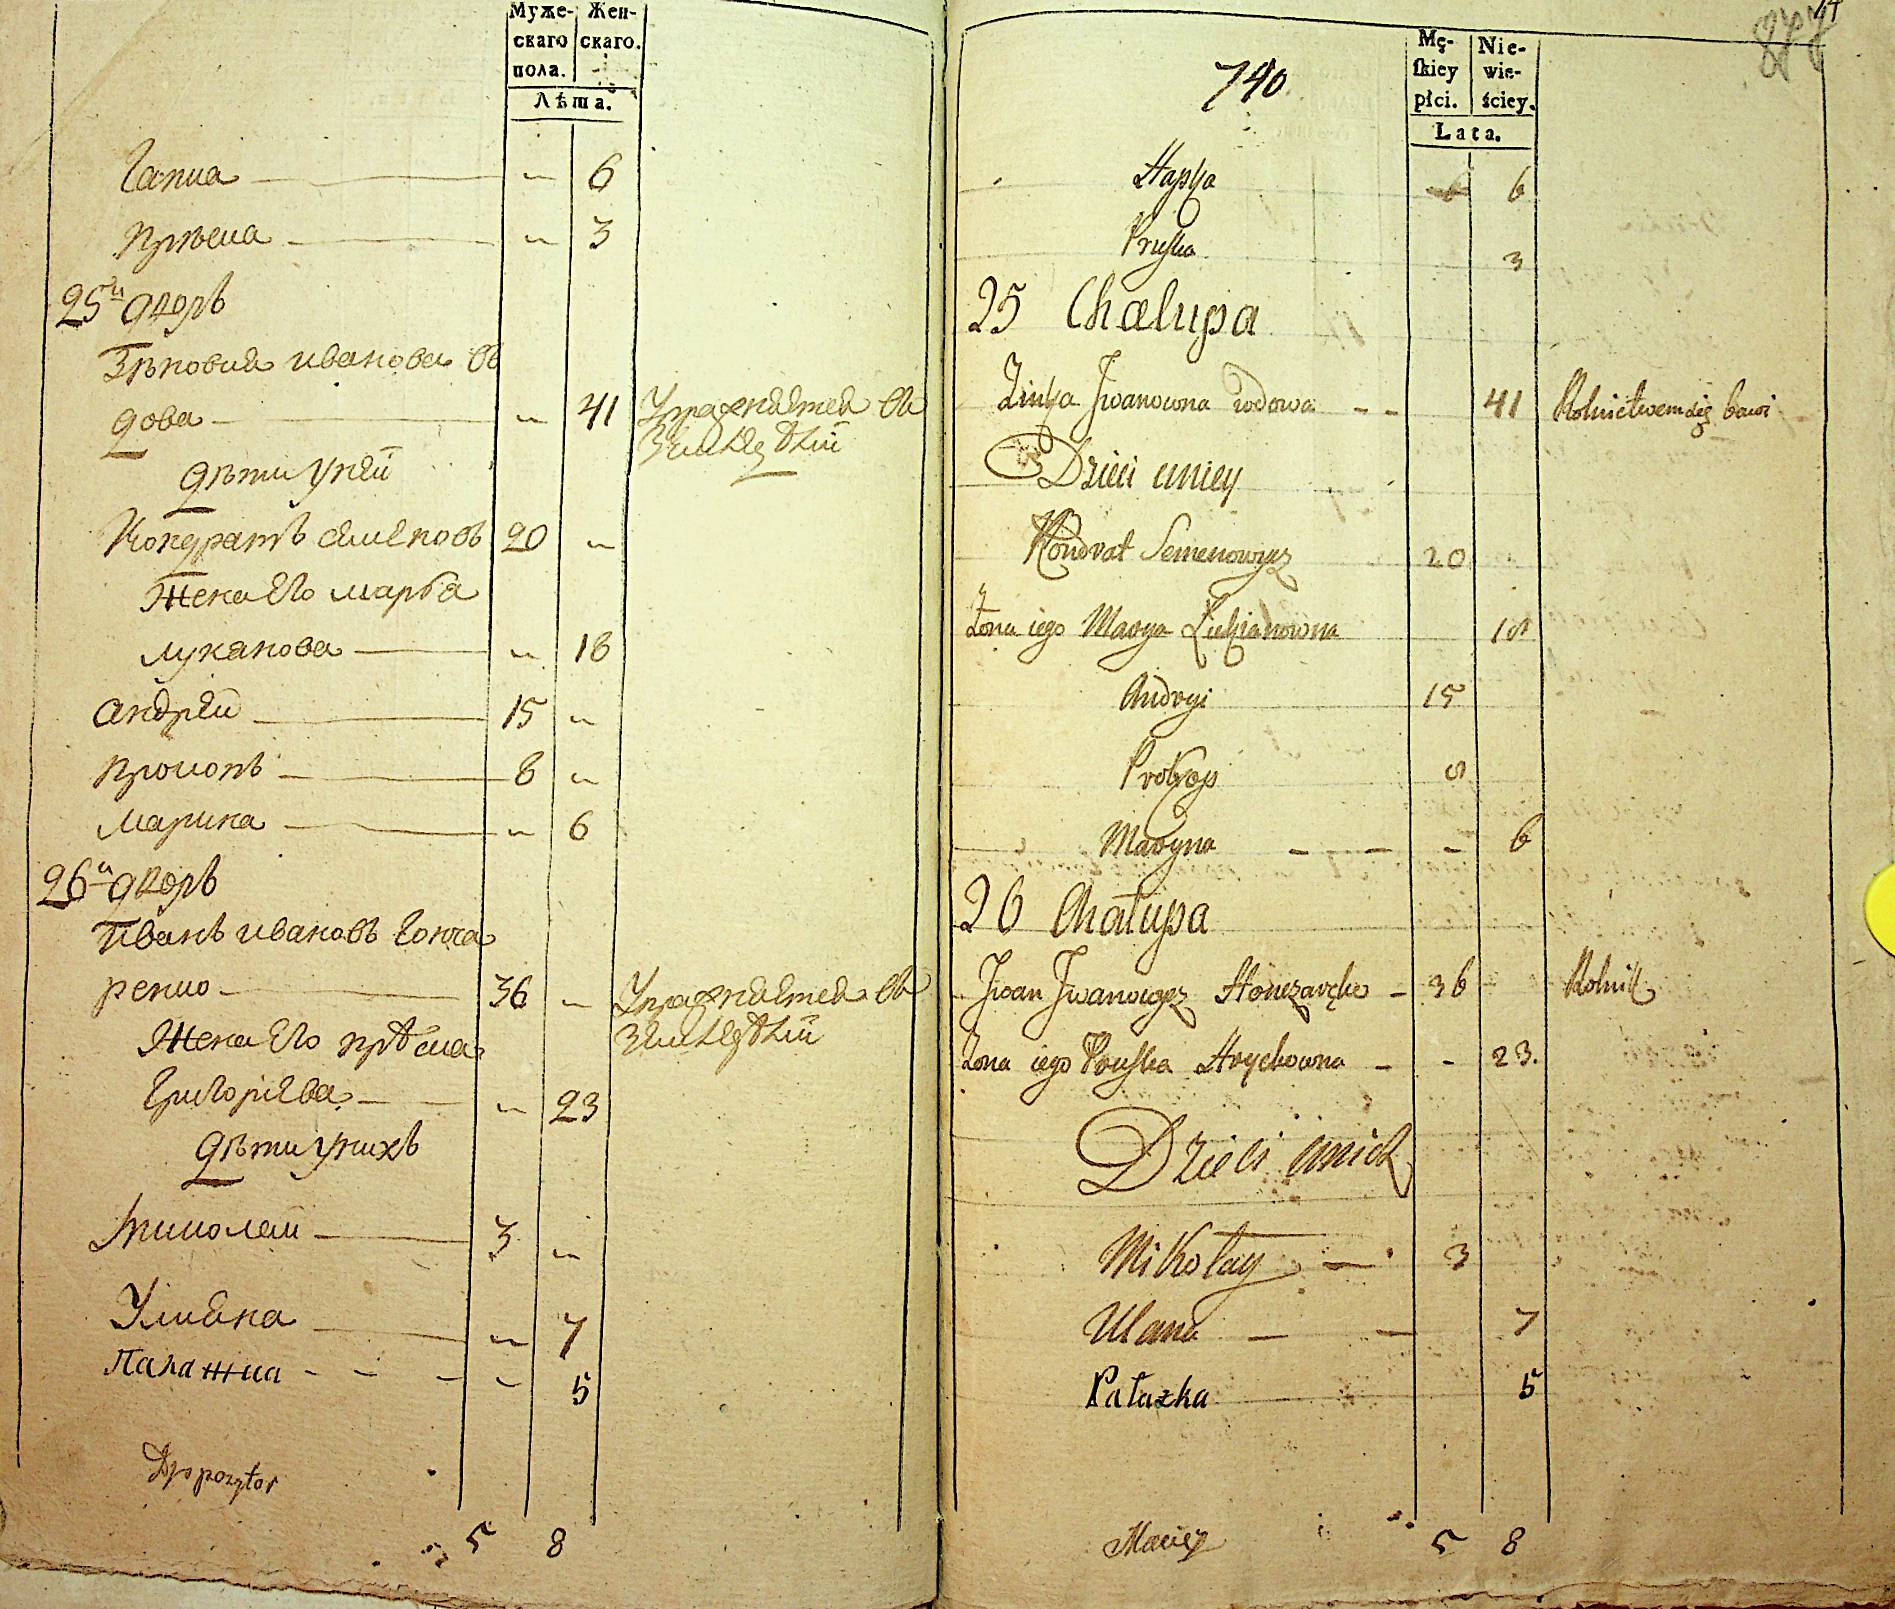 Муже- Жен-
скаго скаго.
пола.
Лѣта.
Гапка — „ 6
Прѣска — „ 3
25й дворъ
Зѣновия иванова вѣ
дова — „ 41 Упражняется въ
Земледѣлии
Дѣти у ней
Кондратъ семеновъ 20 „
Жена его марѳа
луканова — „ 18
андрей — 15 „
прокопъ — 8 „
марина — „ 6
26й дворъ
иванъ ивановъ гонча
ренко — 36 „ Упражняется въ
земледѣлии
Жена его прѣска
григориева — „ 23
Дѣти у нихъ
николай — 3 „
Улияна — „ 7
Палажка - - - „ 5
5 8
740
Mę- Nie-
skiey wie-
płci. ściey.
Lata.
Hapka 6
Pryska 3
25 Chałupa
Zinka Jwanowna wdowa - - 41 Rolnictwem się bawi
Dzieci u niey
Kondrat Semenowycz 20
Zona iego Marya Łukianowna 18
Andryi 15
Prokop 8
Maryna - - - 6
26 Chałupa
Jwan Jwanowycz Honczarenko - 36 Rolnik
Zona iego Pryska Hrychowna - - 23.
Dzieci u nich
Mikołay — 3
Ulana — — 7
Pałazka 5
Maciey 5 8